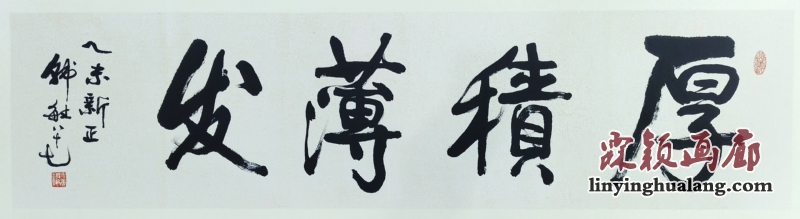 厚積薄发
乙未新正
韩敏八十七
霖颖画廊
linyinghualang.com